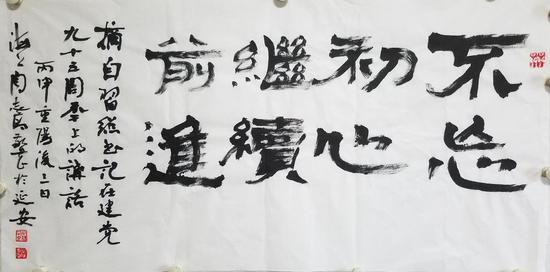 不忘
初心
繼續
前進
摘自習總書記在建党
九十五周年上的講話
丙申重陽後日
海上周志高敬書於延安